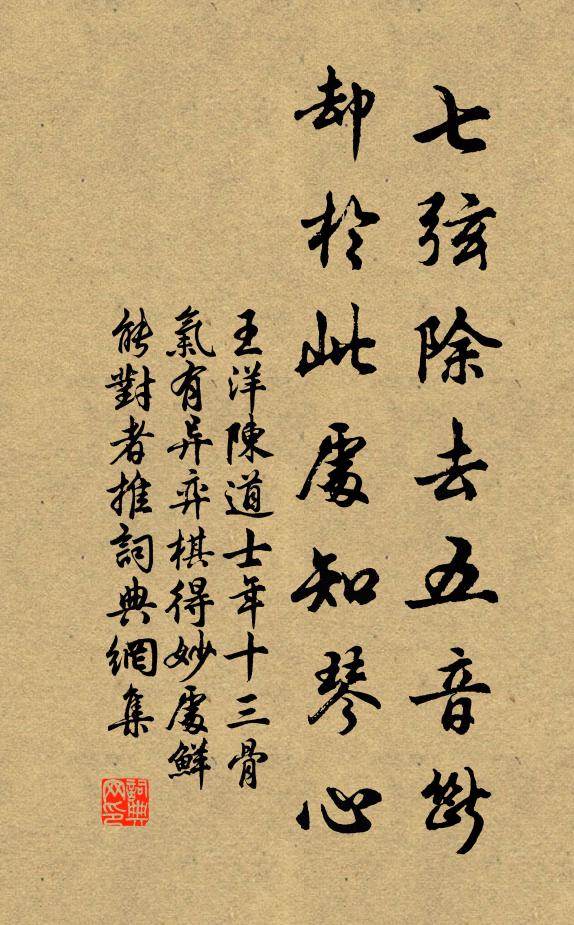 七弦除去五音斷
却於此處知琴心
王洋陳道士年十三骨
氣有异弈棋得妙處鮮
能對者推詞典網集
詞典
网印